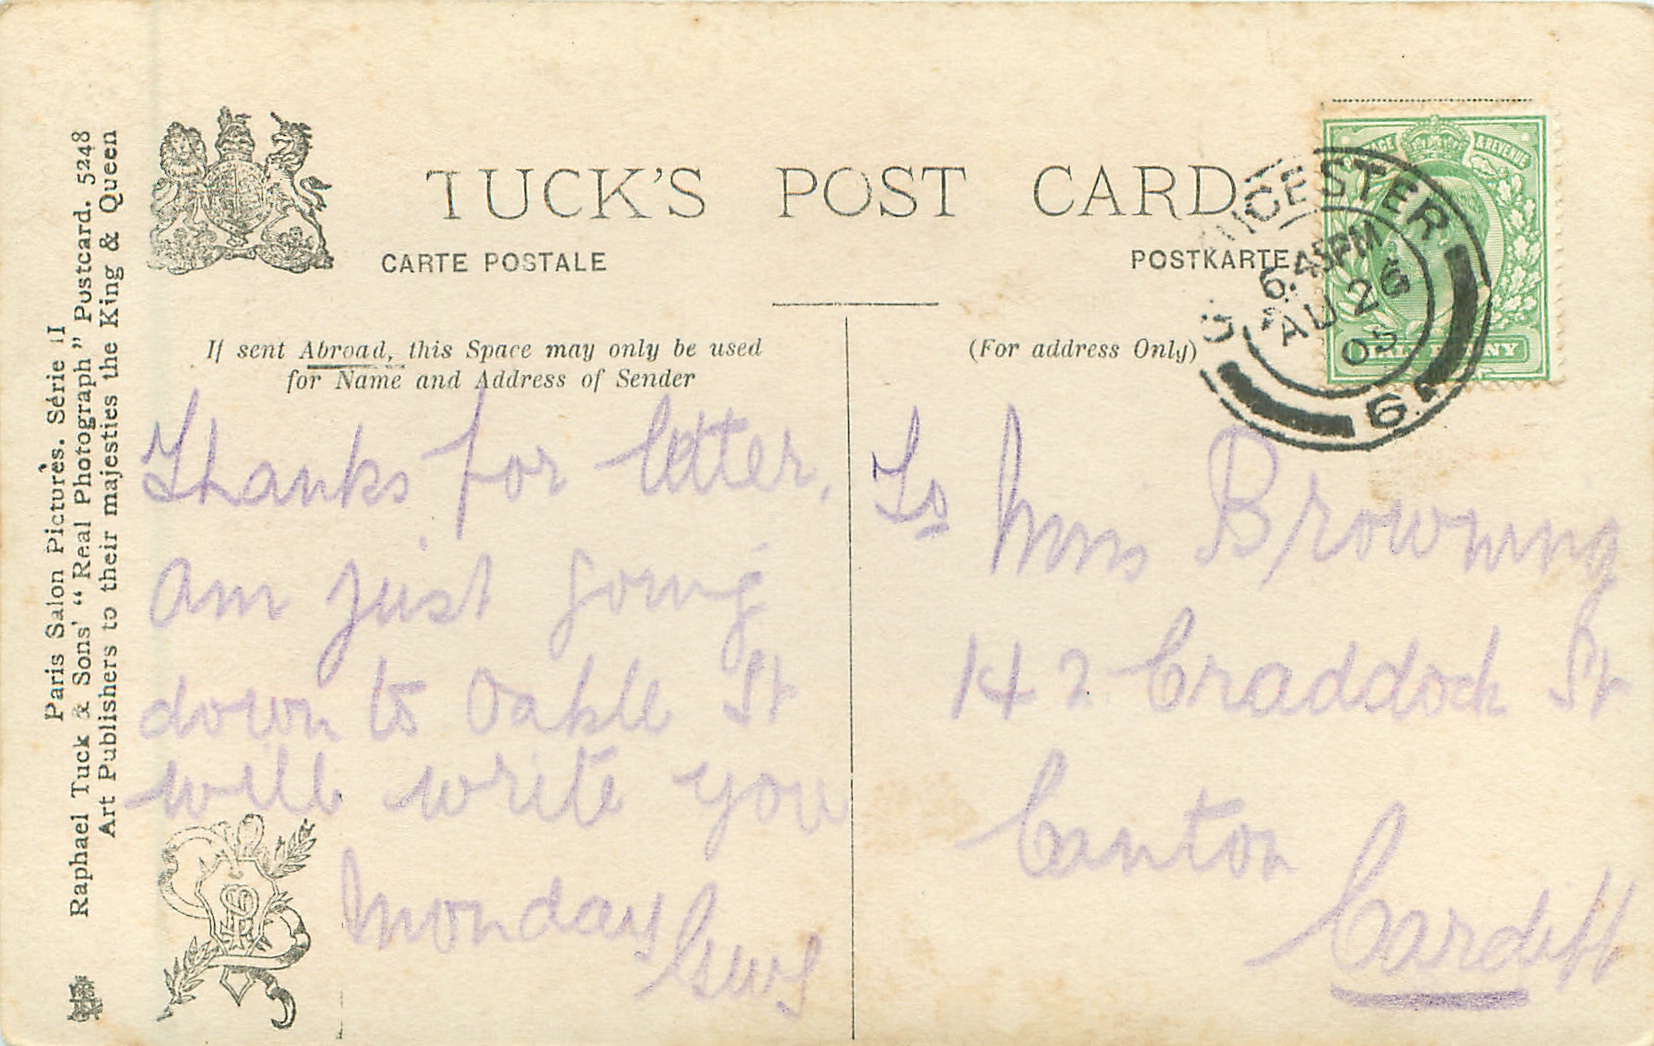 TUCK'S POST CARD
CARTE POSTALE
POSTKARTE
If sent Abroad, this Space may only be used
for Name and Address of Sender
(For address Only)
Thanks for letter,
am just going
down to Oakle St
will write you
Monday
To Miss Browning
142 Craddock St
Canton
Cardiff
POSTAGE & REVENUE
HALF PENNY
6.45PM
AU 26
05
Paris Salon Pictures. Série II
Raphael Tuck & Sons' "Real Photograph" Postcard. 5248
Art Publishers to their majesties the King & Queen